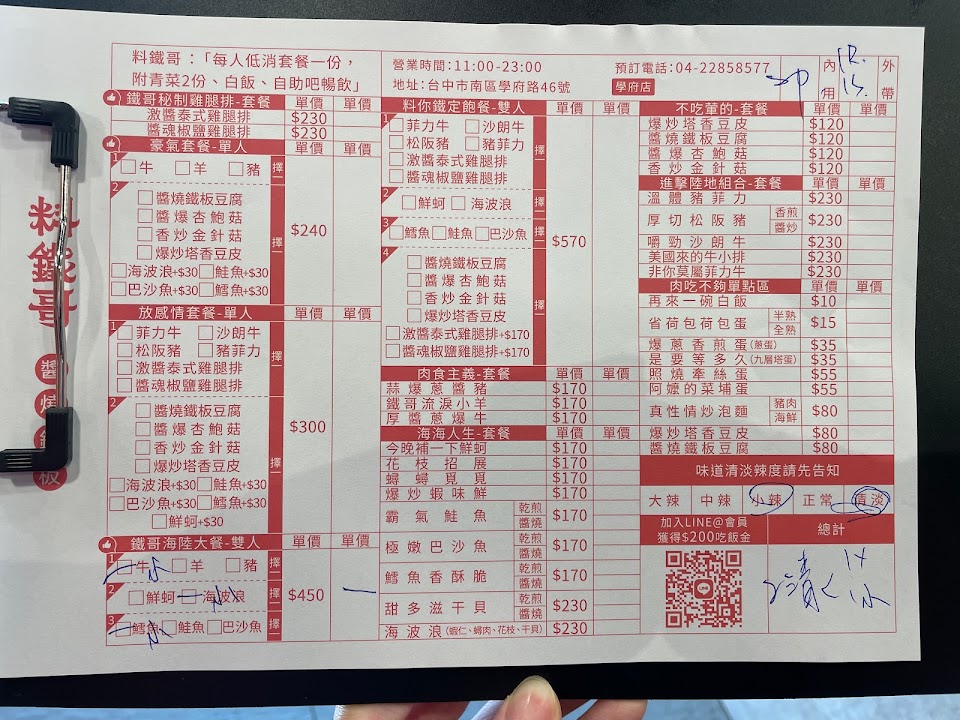 料鐵哥
醬燒
板
料鐵哥：「每人低消套餐一份，
附青菜2份、白飯、自助吧暢飲」
營業時間:11:00-23:00
地址:台中市南區學府路46號
預訂電話:04-22858577
學府店
內用
外帶
鐵哥秘制雞腿排-套餐 單價 單價
激醬泰式雞腿排 $230
醬魂椒鹽雞腿排 $230
豪氣套餐-單人 單價 單價
1 牛 羊 豬 擇一
2 醬燒鐵板豆腐
醬爆杏鮑菇
香炒金針菇
爆炒塔香豆皮
擇一
$240
海波浪+$30 鮭魚+$30
巴沙魚+$30 鱈魚+$30
放感情套餐-單人 單價 單價
1 菲力牛 沙朗牛
松阪豬 豬菲力
激醬泰式雞腿排
醬魂椒鹽雞腿排
擇一
2 醬燒鐵板豆腐
醬爆杏鮑菇
香炒金針菇
爆炒塔香豆皮
擇一
$300
海波浪+$30 鮭魚+$30
巴沙魚+$30 鱈魚+$30
鮮蚵+$30
鐵哥海陸大餐-雙人 單價 單價
1 牛 羊 豬 擇一
2 鮮蚵 海波浪 擇一
$450
3 鱈魚 鮭魚 巴沙魚 擇一
料你鐵定飽餐-雙人 單價 單價
1 菲力牛 沙朗牛
松阪豬 豬菲力
激醬泰式雞腿排
醬魂椒鹽雞腿排
擇一
2 鮮蚵 海波浪 擇一
3 鱈魚 鮭魚 巴沙魚 擇一
$570
4 醬燒鐵板豆腐
醬爆杏鮑菇
香炒金針菇
爆炒塔香豆皮
激醬泰式雞腿排+$170
醬魂椒鹽雞腿排+$170
擇一
肉食主義-套餐 單價 單價
蒜爆蔥醬豬 $170
鐵哥流淚小羊 $170
厚醬蔥爆牛 $170
海海人生-套餐 單價 單價
今晚補一下鮮蚵 $170
花枝招展 $170
蟳蟳覓覓 $170
爆炒蝦味鮮 $170
霸氣鮭魚 乾煎 醬燒 $170
極嫩巴沙魚 乾煎 醬燒 $170
鱈魚香酥脆 乾煎 醬燒 $170
甜多滋干貝 乾煎 醬燒 $230
海波浪(蝦仁、蟳肉、花枝、干貝) $230
不吃葷的-套餐 單價 單價
爆炒塔香豆皮 $120
醬燒鐵板豆腐 $120
醬爆杏鮑菇 $120
香炒金針菇 $120
進擊陸地組合-套餐 單價 單價
溫體豬菲力 $230
厚切松阪豬 香煎 醬炒 $230
嚼勁沙朗牛 $230
美國來的牛小排 $230
非你莫屬菲力牛 $230
肉吃不夠單點區 單價 單價
再來一碗白飯 $10
省荷包荷包蛋 半熟 全熟 $15
爆蔥香煎蛋(蔥蛋) $35
是要等多久(九層塔蛋) $35
照燒牽絲蛋 $55
阿嬤的菜埔蛋 $55
真性情炒泡麵 豬肉 海鮮 $80
爆炒塔香豆皮 $80
醬燒鐵板豆腐 $80
味道清淡辣度請先告知
大辣 中辣 小辣 正常 清淡
加入LINE@會員
獲得$200吃飯金
總計